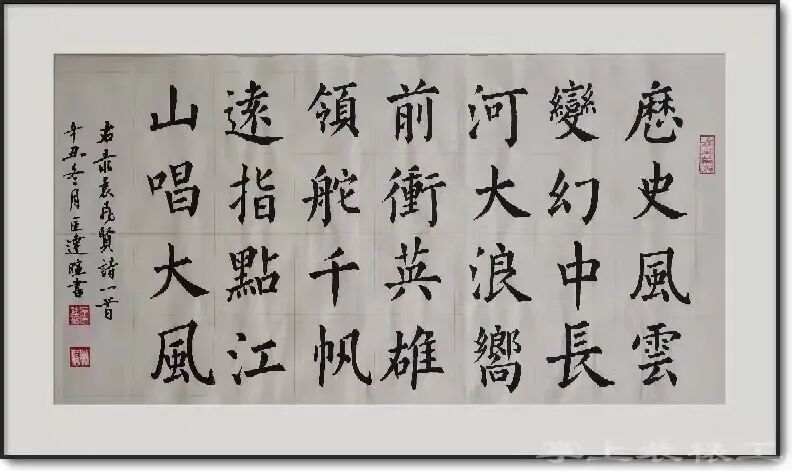 歷史風雲
變幻中長
河大浪嚮
前衝英雄
領舵千帆
遠指點江
山唱大風
右录袁飛賢詩一首
辛丑冬月匡達暄書
掌上装裱工